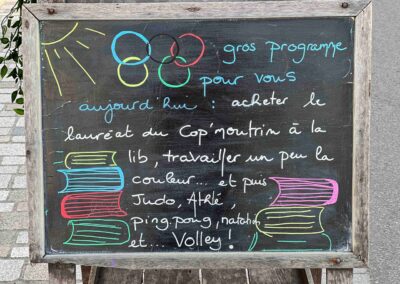 gros programme
pour vous
aujourd'hui : acheter le
lauréat du Cop'moutrin à la
lib, travailler un peu la
couleur... et puis
Judo, Athlé,
ping.pong, natation
et... Volley !